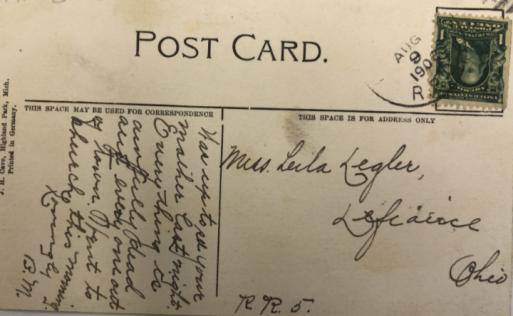 POST CARD.
AUG
9
190
R
THIS SPACE MAY BE USED FOR CORRESPONDENCE
THIS SPACE IS FOR ADDRESS ONLY
J. H. Cave, Highland Park, Mich.
Printed in Germany.
Was up to see your
mother last night.
Everything is
awfully dead
and every one out
of town. Went to
church this morning
Lovingly,
B.M.
Miss. Leila Legler,
Defiance
Ohio
R R. 5.